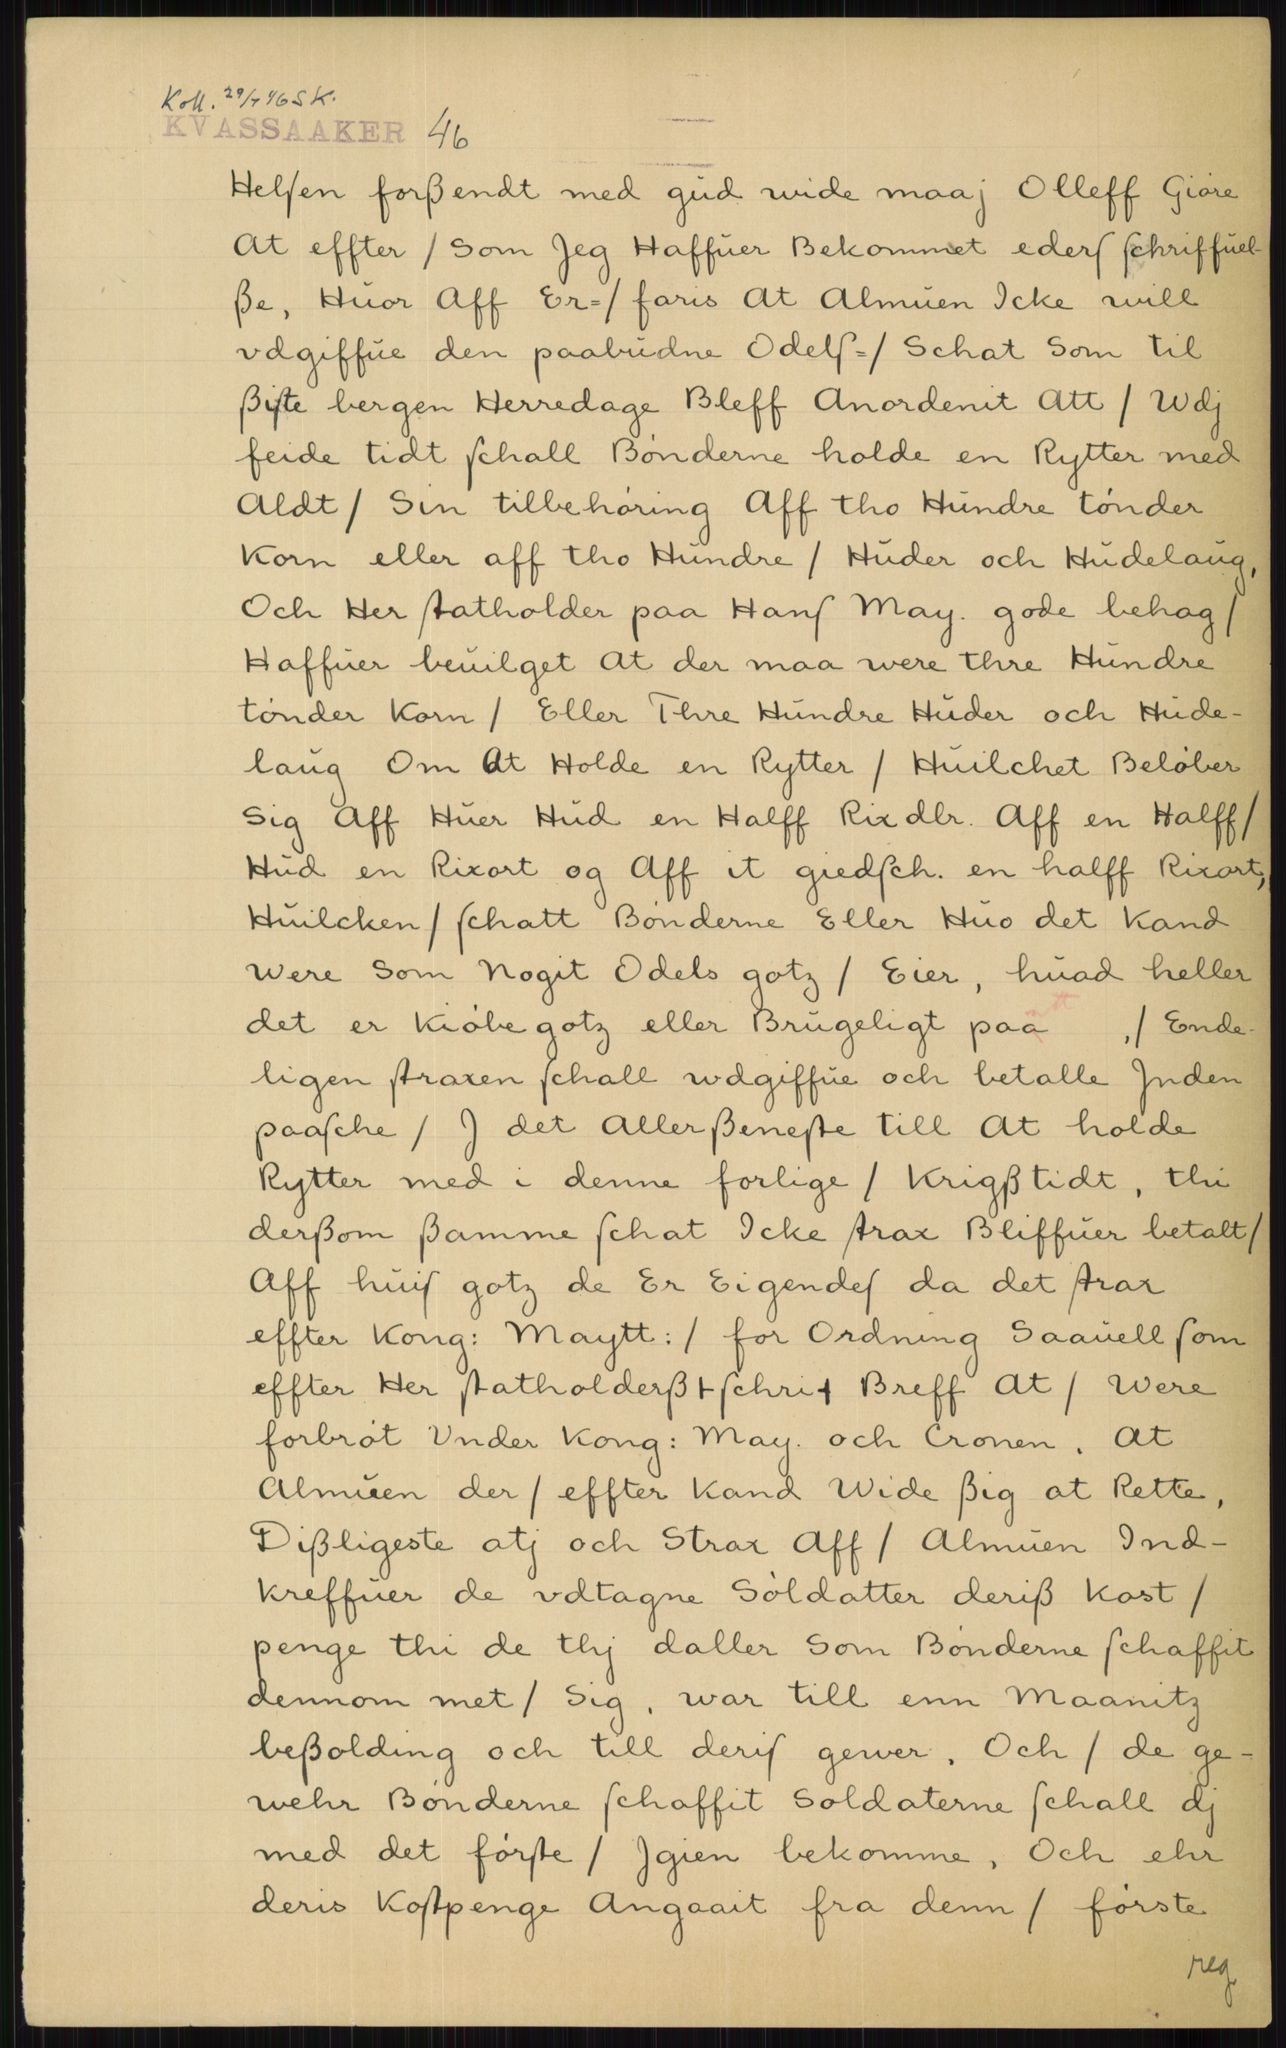 Koll. 29/7 46 SK.
KVASSAAKER 46
Helſen forßendt med gud wide maaj Olleff Giöre
At effter / Som Jeg Haffuer Bekommet ederſ ſchriffuel-
ße, Huor Aff Er=/ faris At Almuen Icke will
vdgiffue den paabudne Odelſ=/ Schat Som til
ßiſte bergen Herredage Bleff Anordenit Att / Wdj
feide tidt ſchall Bönderne holde en Rytter med
Aldt / Sin tilbehöring Aff tho Hundre tönder
Korn eller aff tho Hundre / Huder och Hudelaug,
Och Her ſtatholder paa Hanſ May. gode behag /
Haffuer beuilget At der maa were thre Hundre
tönder Korn / Eller Thre Hundre Huder och Hude-
laug Om At Holde en Rytter / Huilchet Belöber
Sig Aff Huer Hud en Halff Rixdlr. Aff en Halff /
Hud en Rixort og Aff it giedſch. en halff Rixort,
Huilcken / ſchatt Bönderne Eller Huo det Kand
Were Som Nogit Odels gotz / Eier, huad heller
det er Kiöbegotz eller Brugeligt paa tt ,/ Ende-
ligen ſtraxen ſchall wdgiffue och betalle Jnden
paaſche / J det Allerßeneſte till At holde
Rytter med i denne forlige / Krigßtidt, thi
derßom ßamme ſchat Icke ſtrax Bliffuer betalt /
Aff huiſ gotz de Er Eigendeſ da det ſtrax
effter Kong: Maytt: / for Ordning Saauell ſom
effter Her ſtatholderß + ſchri + Breff At / Were
forbröt Vnder Kong: May. och Cronen. At
Almuen der / effter Kand Wide ßig at Rette,
Dißligeste atj och Strax Aff / Almuen Ind-
Kreffuer de vdtagne Söldatter deriß Kost /
penge thi de thj daller Som Bönderne ſchaffit
dennom met / Sig, war till enn Maanitz
beßolding och till deriſ gewer, Och / de ge-
wehr Bönderne ſchaffit Soldaterne ſchall dj
med det förſte / Jgien bekomme, Och ehr
deris Koſtpenge Angaait fra denn / förste
reg